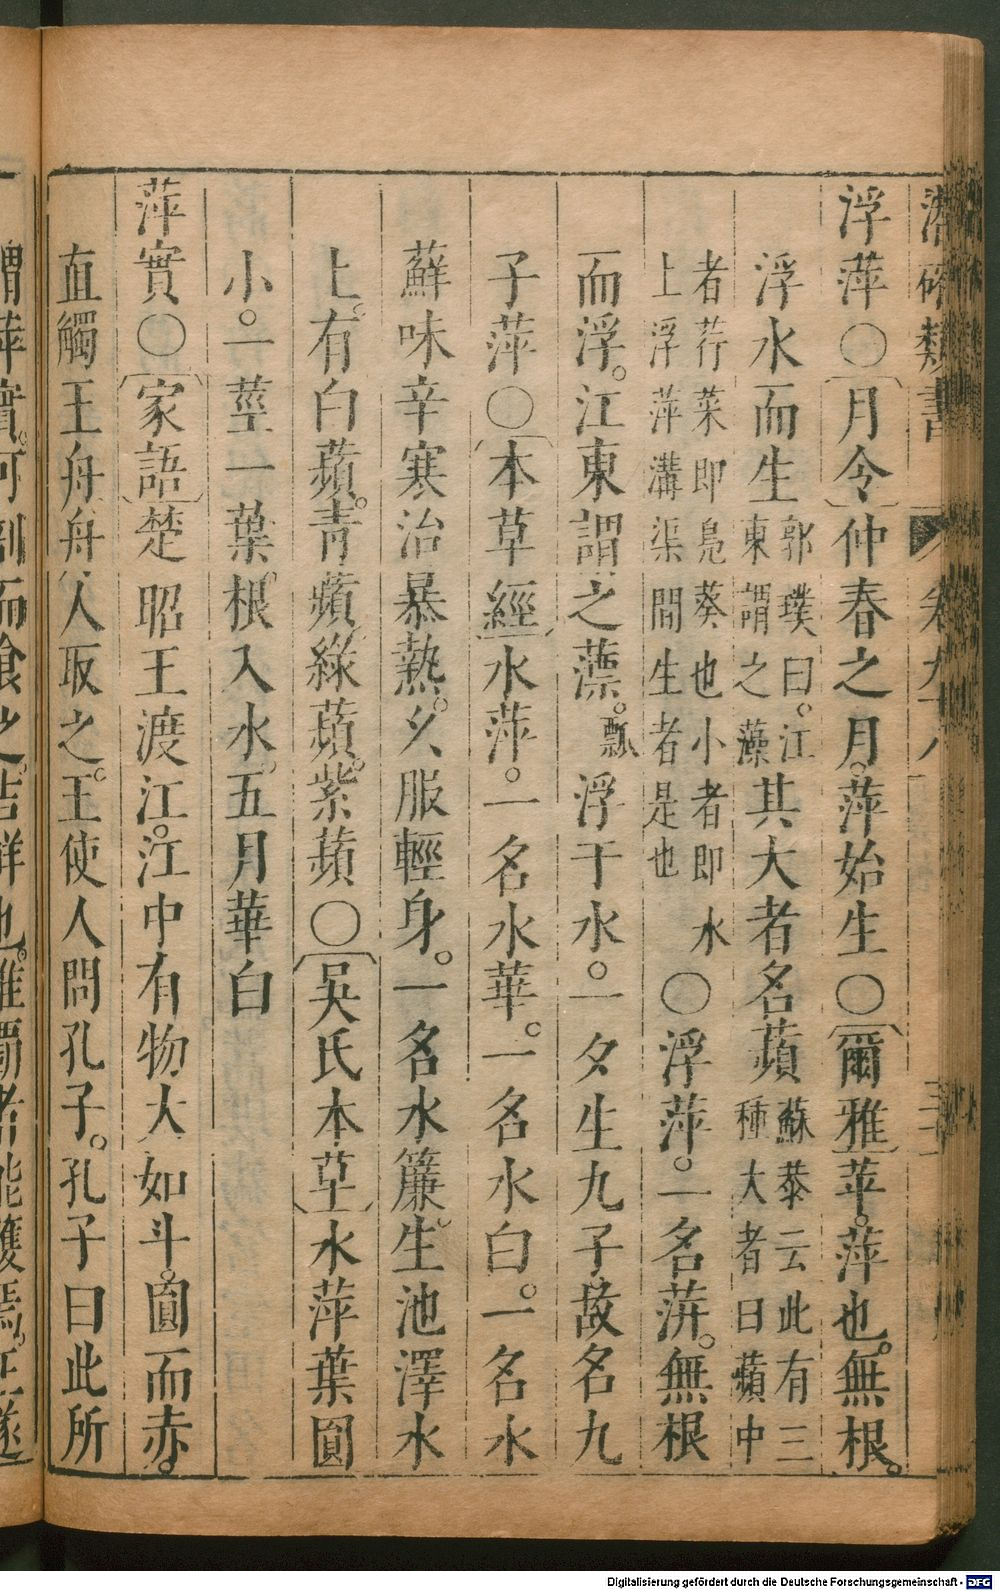 潛確類書 卷九十八
浮萍〇〔月令〕仲春之月。萍始生〇〔爾雅〕苹。萍也。無根。
浮水而生郭璞曰。江東謂之薸其大者名蘋蘇恭云此有三種大者曰蘋中
者荇菜即鳧葵也小者即水上浮萍溝渠間生者是也〇浮萍。一名蓱。無根
而浮。江東謂之薸。瓢浮于水。一夕生九子。故名九
子萍〇〔本草經〕水萍。一名水華。一名水白。一名水
蘚味辛寒治暴熱。久服輕身。一名水簾。生池澤水
上。有白蘋。青蘋綠蘋。紫蘋〇〔吳氏本草〕水萍葉圓
小。一莖一葉。根入水。五月華白
萍實〇〔家語〕楚昭王渡江。江中有物大如斗。圓而赤。
直觸王舟舟人取之。王使人問孔子。孔子曰此所
謂萍實。可剖而食之。吉祥也。惟霸者能獲焉。王遂
Digitalisierung gefördert durch die Deutsche Forschungsgemeinschaft - DFG